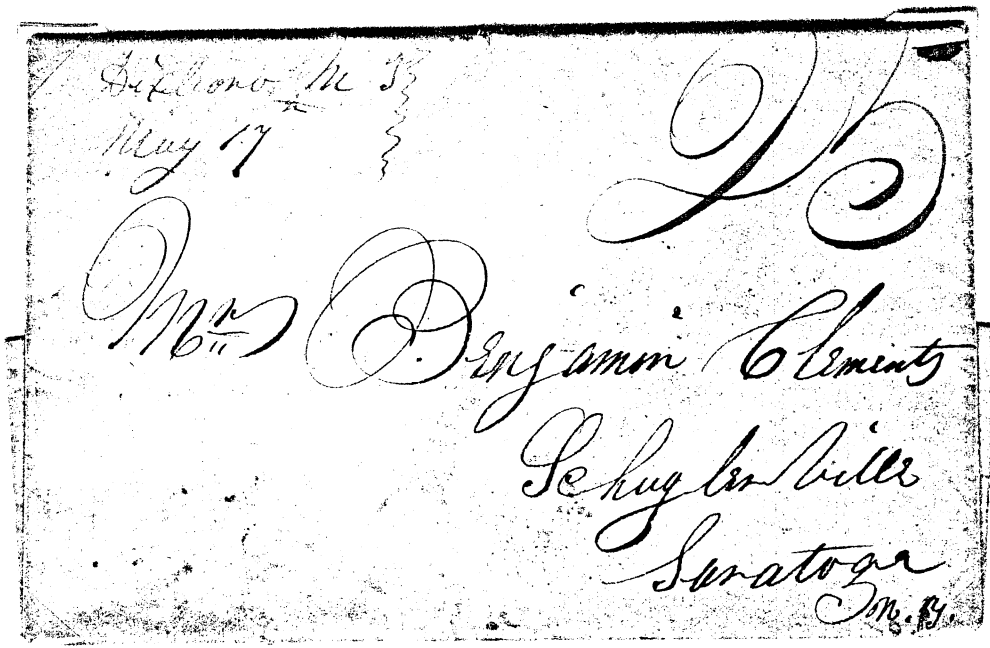 Dixboro M T
May 17
25
Mr Benjamin Clements
Schuyler Ville
Saratoga
N. Y.